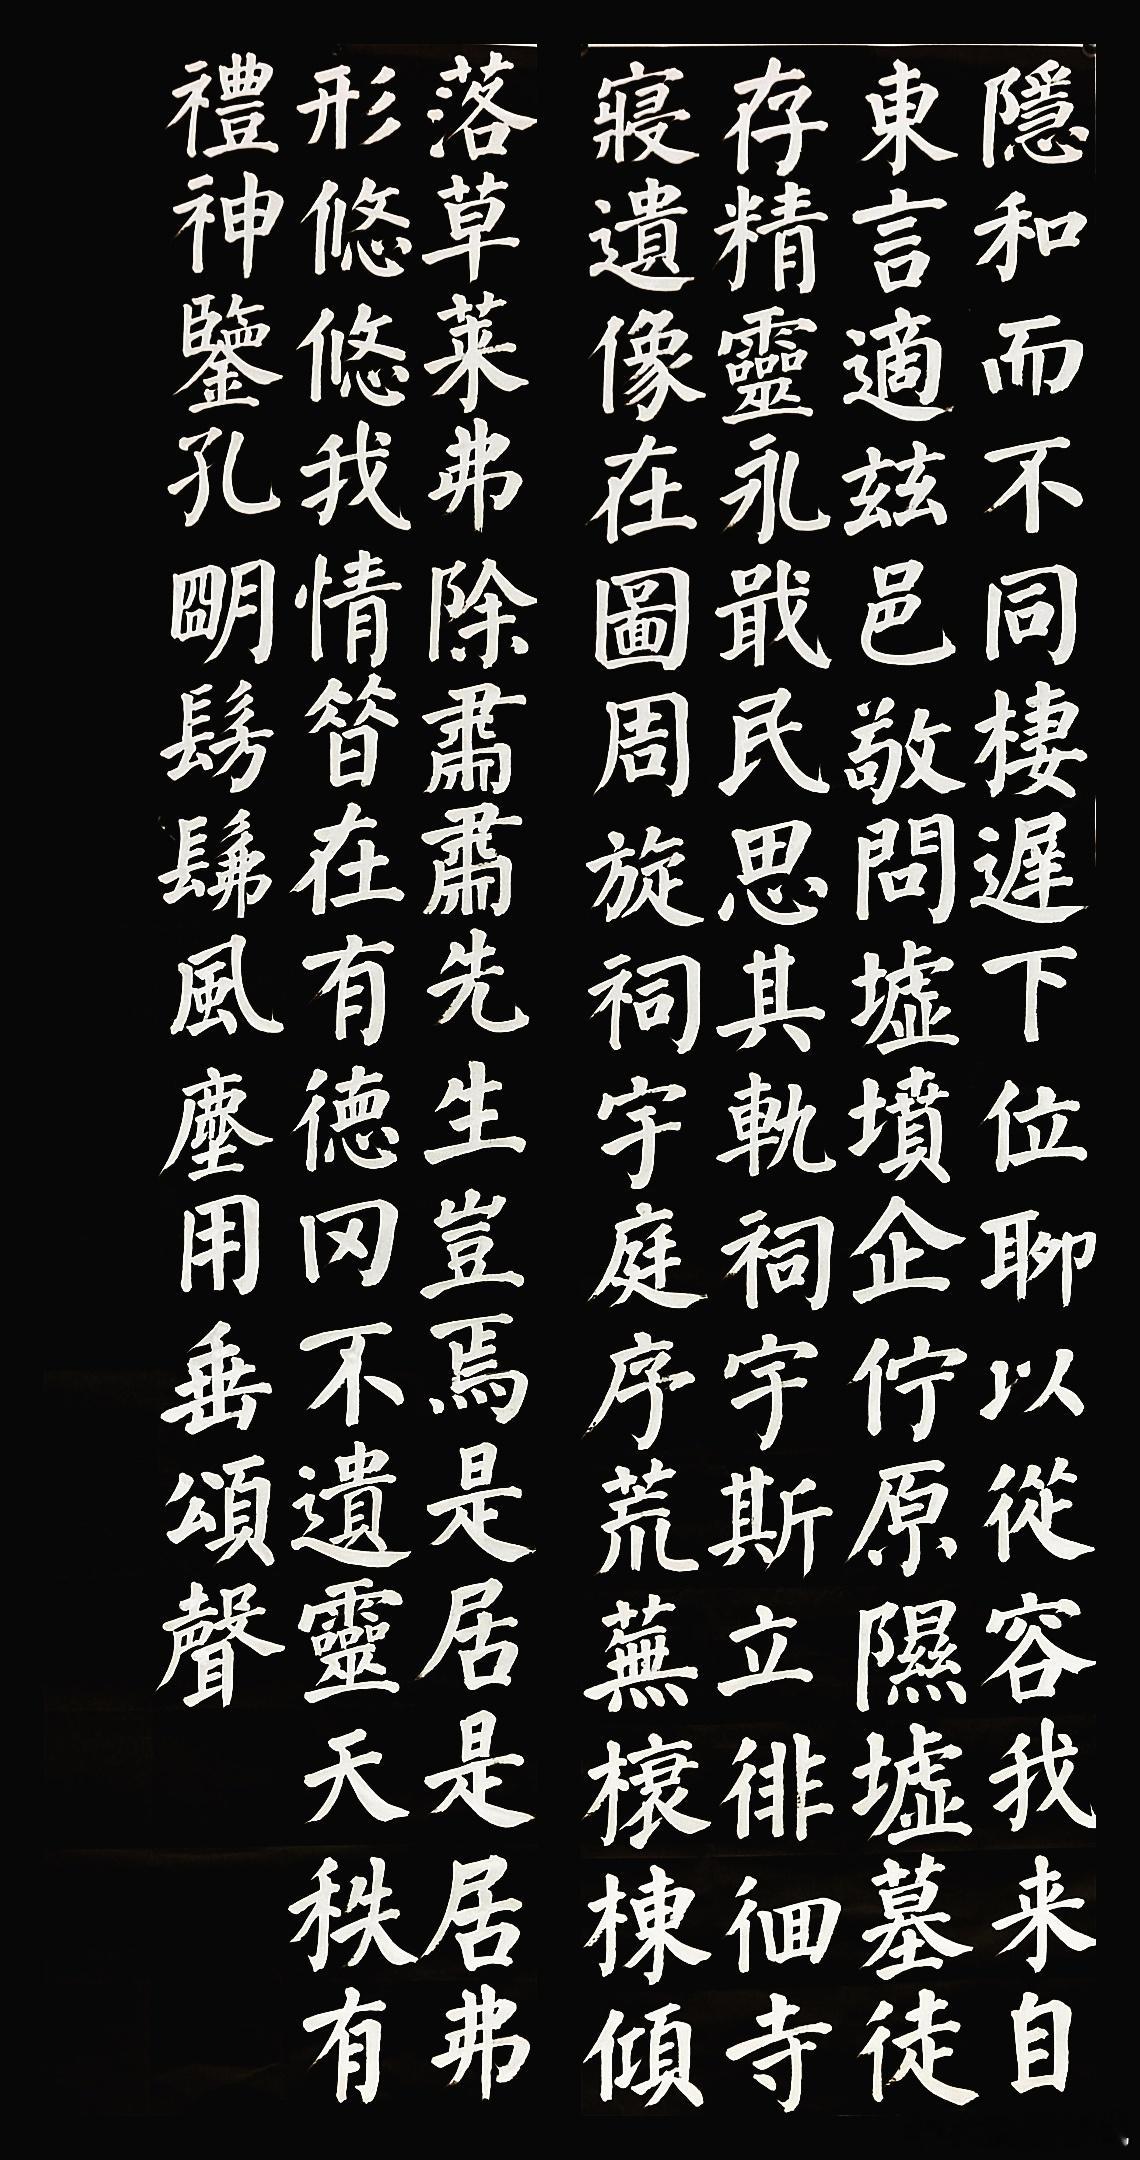 隱和而不同棲遲下位聊以從容我来自
東言適茲邑敬問墟墳企佇原隰墟墓徒
存精靈永戢民思其軌祠宇斯立徘徊寺
寢遺像在圖周旋祠宇庭序荒蕪榱棟傾
落草莱弗除肅肅先生豈焉是居是居弗
形悠悠我情昔在有德罔不遺靈天秩有
禮神鑒孔明髣髴風塵用垂頌聲